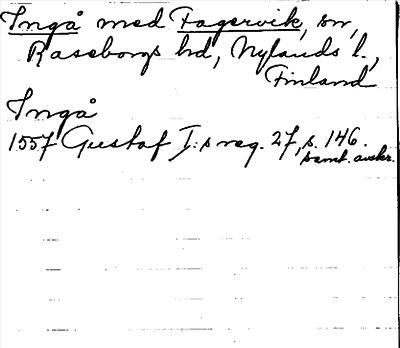 Ingå med Fagervik, sn,
Raseborgs hd, Nylands l.,
Finland
Ingå
1557 Gustaf I:s reg. 27, s. 146.
samt. avskr.